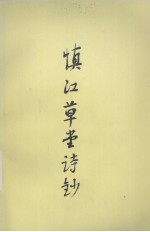 慎江草堂诗钞